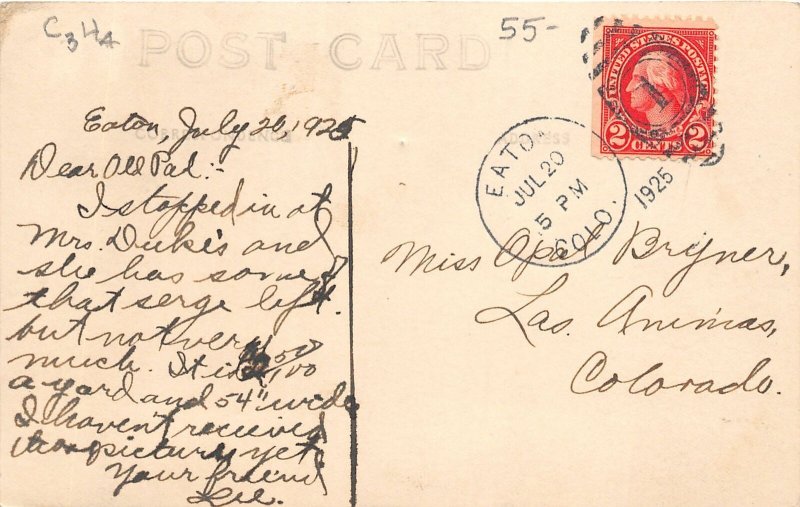 C3H4
55-
POST CARD
UNITED STATES POSTAGE
2 CENTS 2
1
EATON
COLO.
JUL 20
5 PM
1925
CORRESPONDENCE
ADDRESS
Eaton, July 20, 1925
Dear Old Pal:-
I stopped in at
Mrs. Duke's and
she has some of
that serge left.
but not very
much. It is
a yard and 54" wide
I haven't received
picture yet
Your friend
Miss Opal Bryner,
Las. Animas,
Colorado.